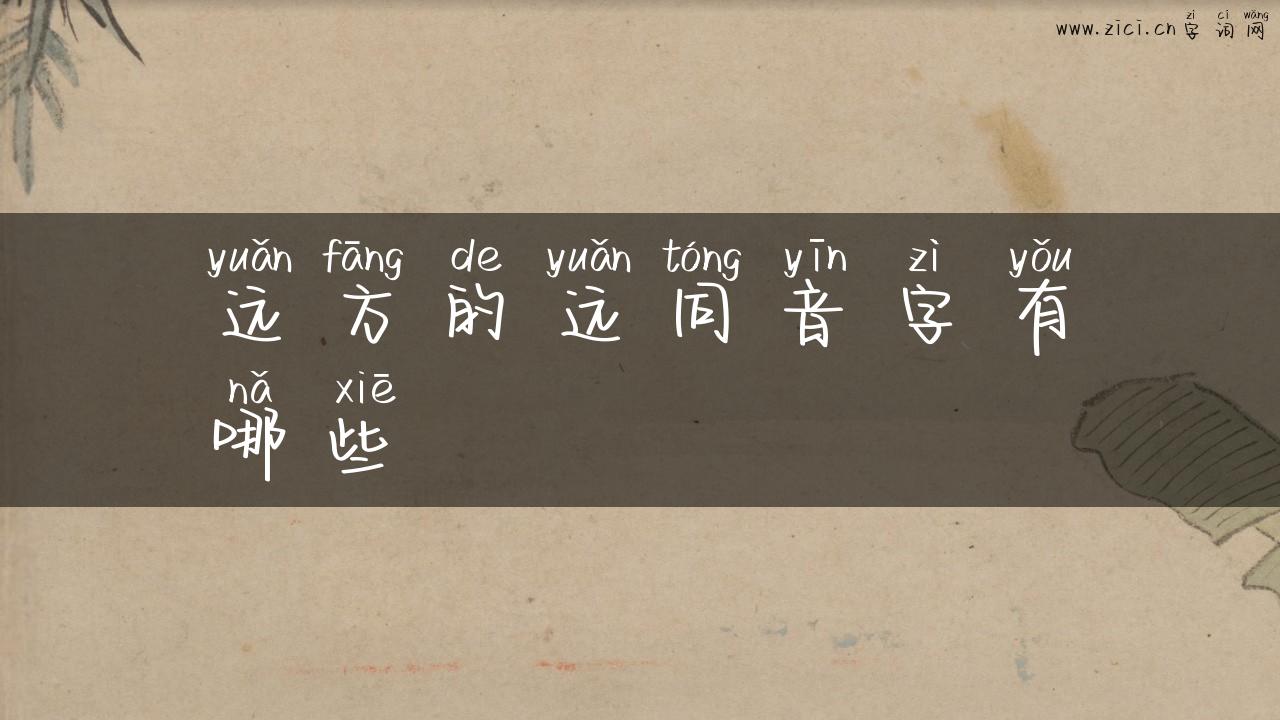 zì cí wǎng
www.zici.cn字词网
yuǎn fāng de yuǎn tóng yīn zì yǒu
远方的远同音字有
nǎ xiē
哪些